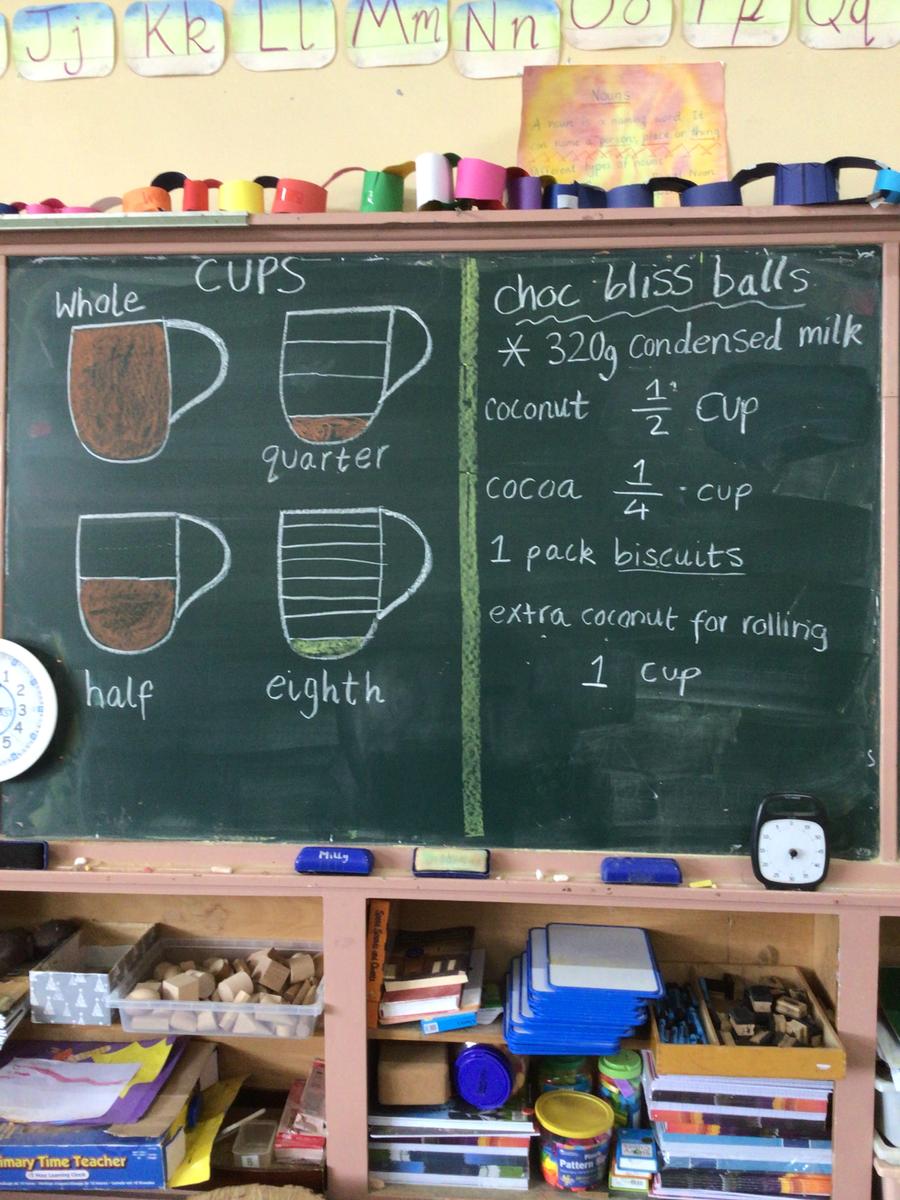 Jj Kk Ll Mm Nn Oo Pp Qq
Nouns
A noun is a naming word. It
can name a person, place or thing
different types of nouns
Noun
CUPS
Whole
quarter
half
eighth
choc bliss balls
* 320g condensed milk
coconut 1/2 cup
cocoa 1/4 cup
1 pack biscuits
extra coconut for rolling
1 cup
1
2
3
4
5
Milly
Primary Time Teacher
12 Hour Learning Clock
Pattern